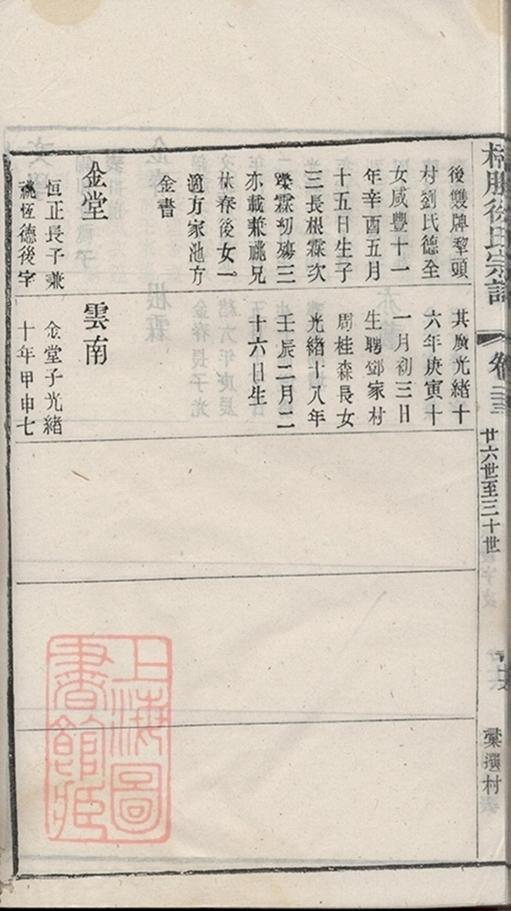 徐氏宗譜
卷二三
廿六世至三十世
後雙牌犂頭
村劉氏德全
女咸豐十一
年辛酉五月
十五日生子
三長根霖次
躒霖初殤三
亦載兼祧兄
林春後女一
適方家池方
金書
金堂
恒正長子兼
祧恆德後字
其廣光緒十
六年庚寅十
一月初三日
生聘鄧家村
周桂森長女
光緒十八年
壬辰二月二
十六日生
雲南
金堂子光緒
十年甲申七
上海圖
書館藏